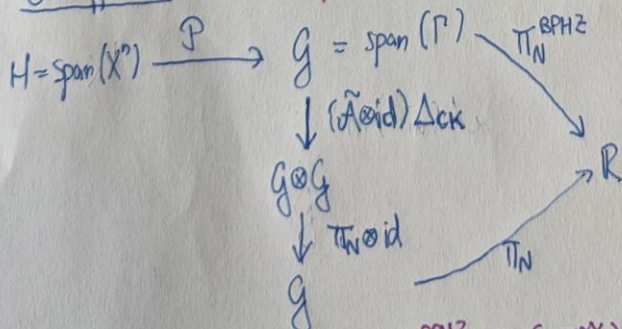 H = span(X^n) P G = span(Γ) Π_N^BPHZ
(Ã⊗id) Δ_CK
G⊗G R
Π_N⊗id Π_N
G